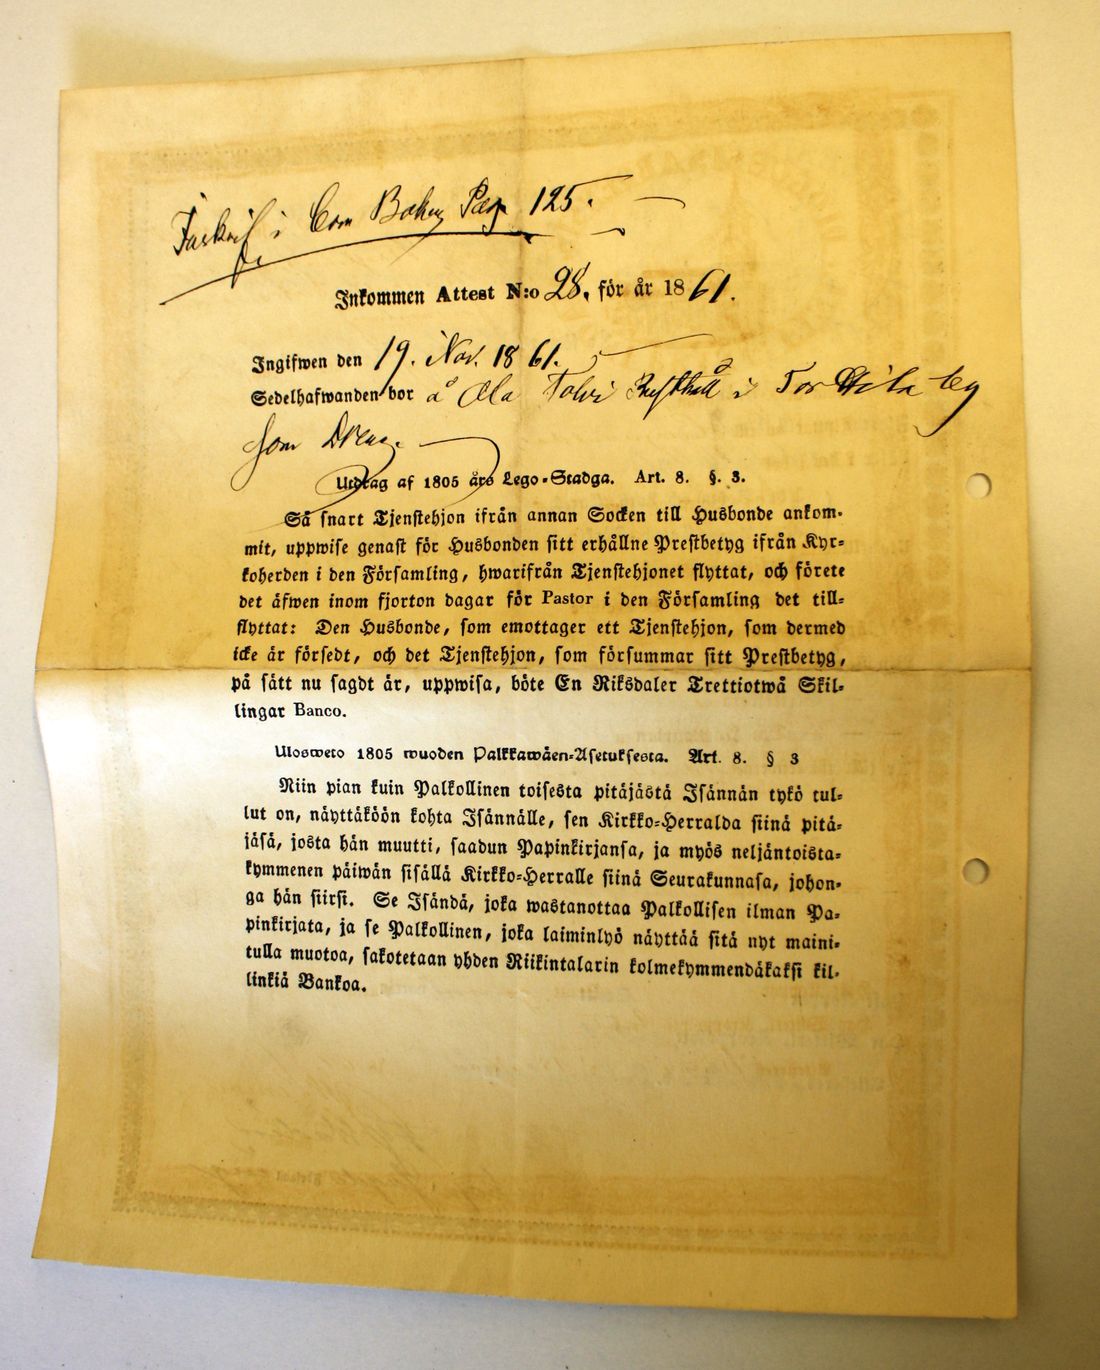 i Com Boken Pag 125.
Inkommen Attest N:o 28. för år 1861.
Ingifwen den 19. Nov. 1861.
Sedelhafwanden bor å i Torttila by
som Dreng.
Utdrag af 1805 års Lego-Stadga. Art. 8. §. 3.
Så snart Tjenstehjon ifrån annan Socken till Husbonde ankom-
mit, uppwise genast för Husbonden sitt erhållne Prestbetyg ifrån Kyr-
koherden i den Församling, hwarifrån Tjenstehjonet flyttat, och förete
det äfwen inom fjorton dagar för Pastor i den Församling det till-
flyttat: Den Husbonde, som emottager ett Tjenstehjon, som dermed
icke är försedt, och det Tjenstehjon, som försummar sitt Prestbetyg,
på sätt nu sagdt är, uppwisa, böte En Riksdaler Trettiotwå Skil-
lingar Banco.
Ulosweto 1805 wuoden Palkkawäen-Asetuksesta. Art. 8. § 3
Niin pian kuin Palkollinen toisesta pitäjästä Isännän tykö tul-
lut on, näyttäköön kohta Isännälle, sen Kirkko-Herralda siinä pitä-
jäsä, josta hän muutti, saadun Papinkirjansa, ja myös neljäntoista-
kymmenen päiwän sisällä Kirkko-Herralle siinä Seurakunnasa, johon-
ga hän siirsi. Se Isändä, joka wastanottaa Palkollisen ilman Pa-
pinkirjata, ja se Palkollinen, joka laiminlyö näyttää sitä nyt maini-
tulla muotoa, sakotetaan yhden Riikintalarin kolmekymmendäkaksi kil-
linkiä Bankoa.